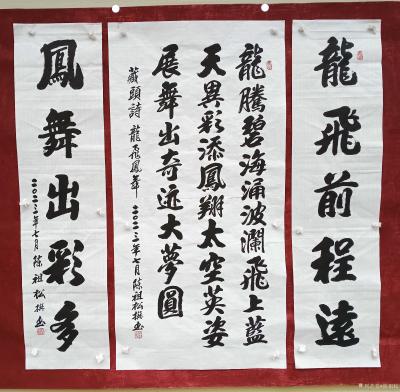 龍飛前程遠
龍騰碧海涌波瀾飛上藍
天異彩添鳳翔太空英姿
展舞出奇迹大夢圓
藏頭詩 龍飛鳳舞 二〇二三年七月 陈祖松撰书
鳳舞出彩多
二〇二三年七月 陈祖松撰书